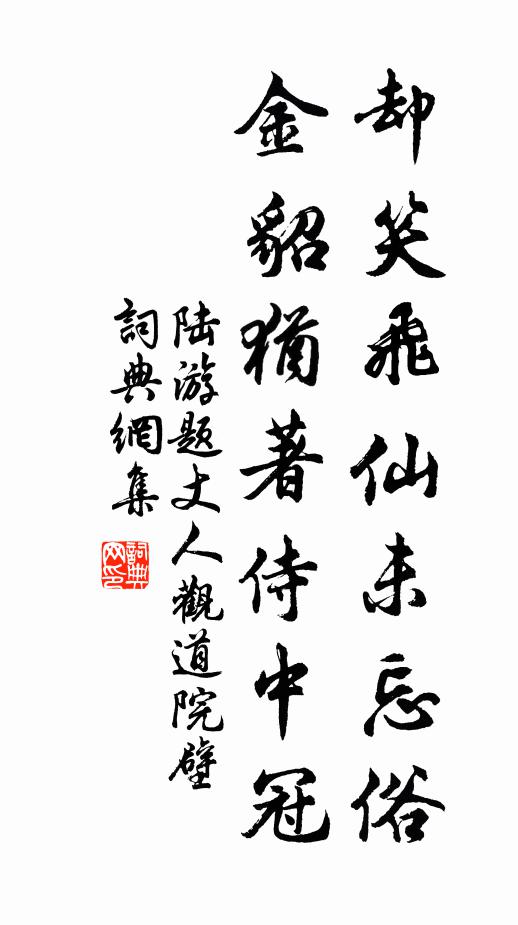 却笑飛仙未忘俗
金貂猶著侍中冠
陆游题丈人觀道院壁
詞典網集
詞典网印